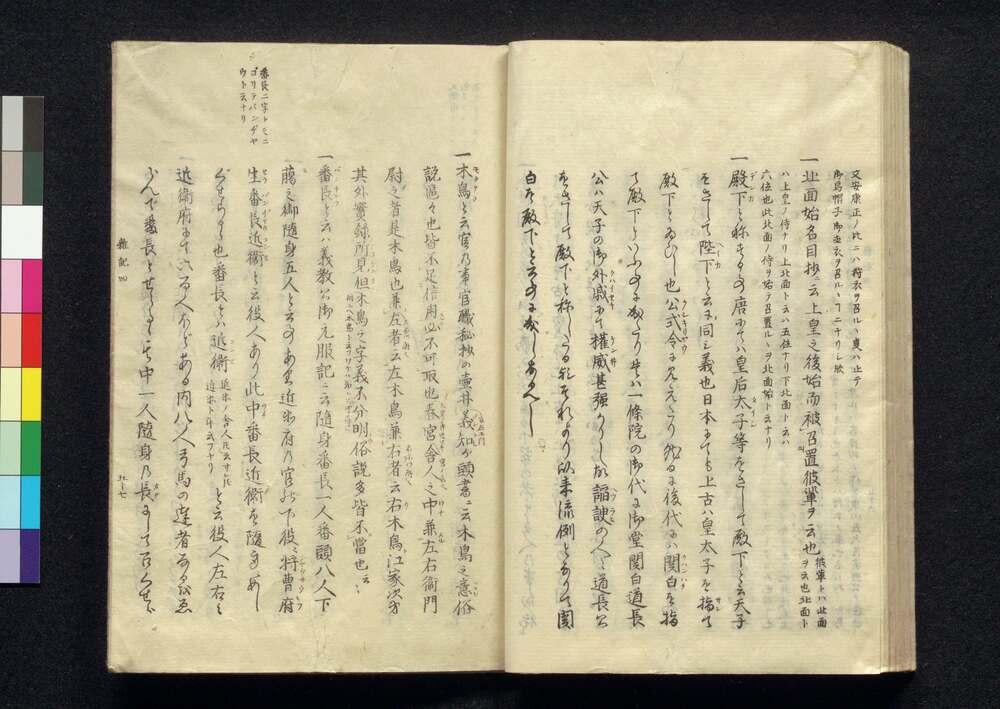 又安康正ノ比ニハ狩衣ヲ召ルヽ㕝ハ止テ
御烏帽子御直衣ヲ召ルヽヿニナリシ歟
一北面始名目抄ニ云上皇之後始而被召置彼輩ヲ云也 彼輩トハ北面
ヲ云也北面ト
ハ上皇ノ侍ナリ上北面ト云ハ五位ナリ下北面ト云ハ
六位也此北面ノ侍ヲ始テ召置ルヽヲ北面始ト云ナリ
一殿下と称する事唐にてハ皇后太子等をさして殿下と云天子
をさして陛下と云に同し義也日本にても上古ハ皇太子を指て
殿下といひし也公式令に見えたり然るに後代ハ関白を指
て殿下といふ事になりたり一條院の御代に御堂関白道長
公ハ天子の御外戚にて権威甚強かりし故諂諛の人々道長公
をさして殿下と称したる也それより以来流例となりて関
白を殿下と云事に成しなるへし
番長ニ字トモニ
ゴリテバンヂヤ
ウト云ナリ
一木鳥と云官乃事官職秘抄の壷井義知が頭書ニ云木鳥之意俗
説區々也皆不足信用必不可取也春宮舎人之中兼左右衛門
尉之者是木鳥也兼左者云左木鳥兼右者云右木鳥江家次第
其外實録所見但木鳥之字義不分明俗説多皆不當也云々
一番長と云ハ義教公御元服記ニ云随身番長一人番頭八人下
臈之御随身五人と云事あり近衛府の官人の下役に将曹府
生番長近衛と云役人あり此中番長近衛を随身に
ぐせらるゝ也番長とハ近衛 近衛ノ舎人氏云
近衛トハカリモ云フナリ と云役人左右の
近衛府にて六百人つゝある内八人弓馬の達者なるをゑ
らんで番長とせらるゝ其中一人随身乃長にしてめしぐせら
雜記四